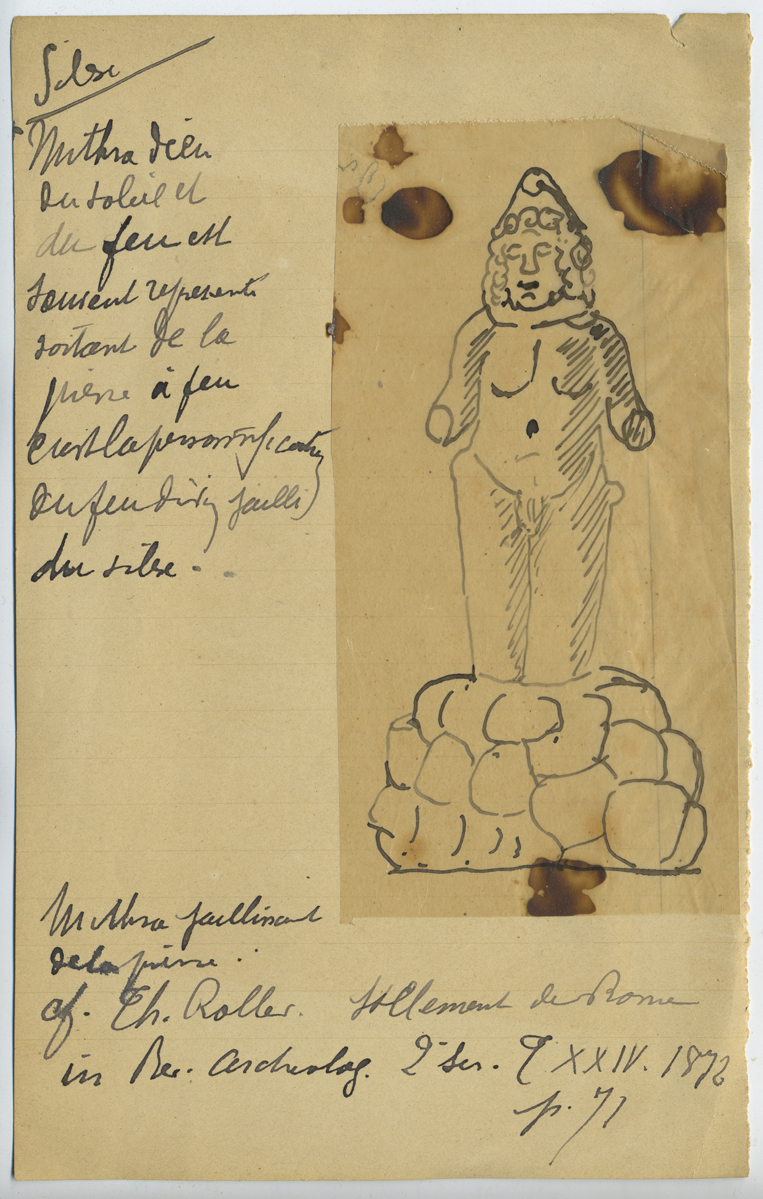 Silex
Mithra dieu
du soleil et
du feu est
souvent représenté
sortant de la
pierre à feu
c'est la personnification
du feu divin jailli
du silex.
Mithra jaillissant
de la pierre.
cf. Th. Roller. St Clement de Rome
in Rev. Archeolog. 2e Ser. T XXIV. 1872
p. 71